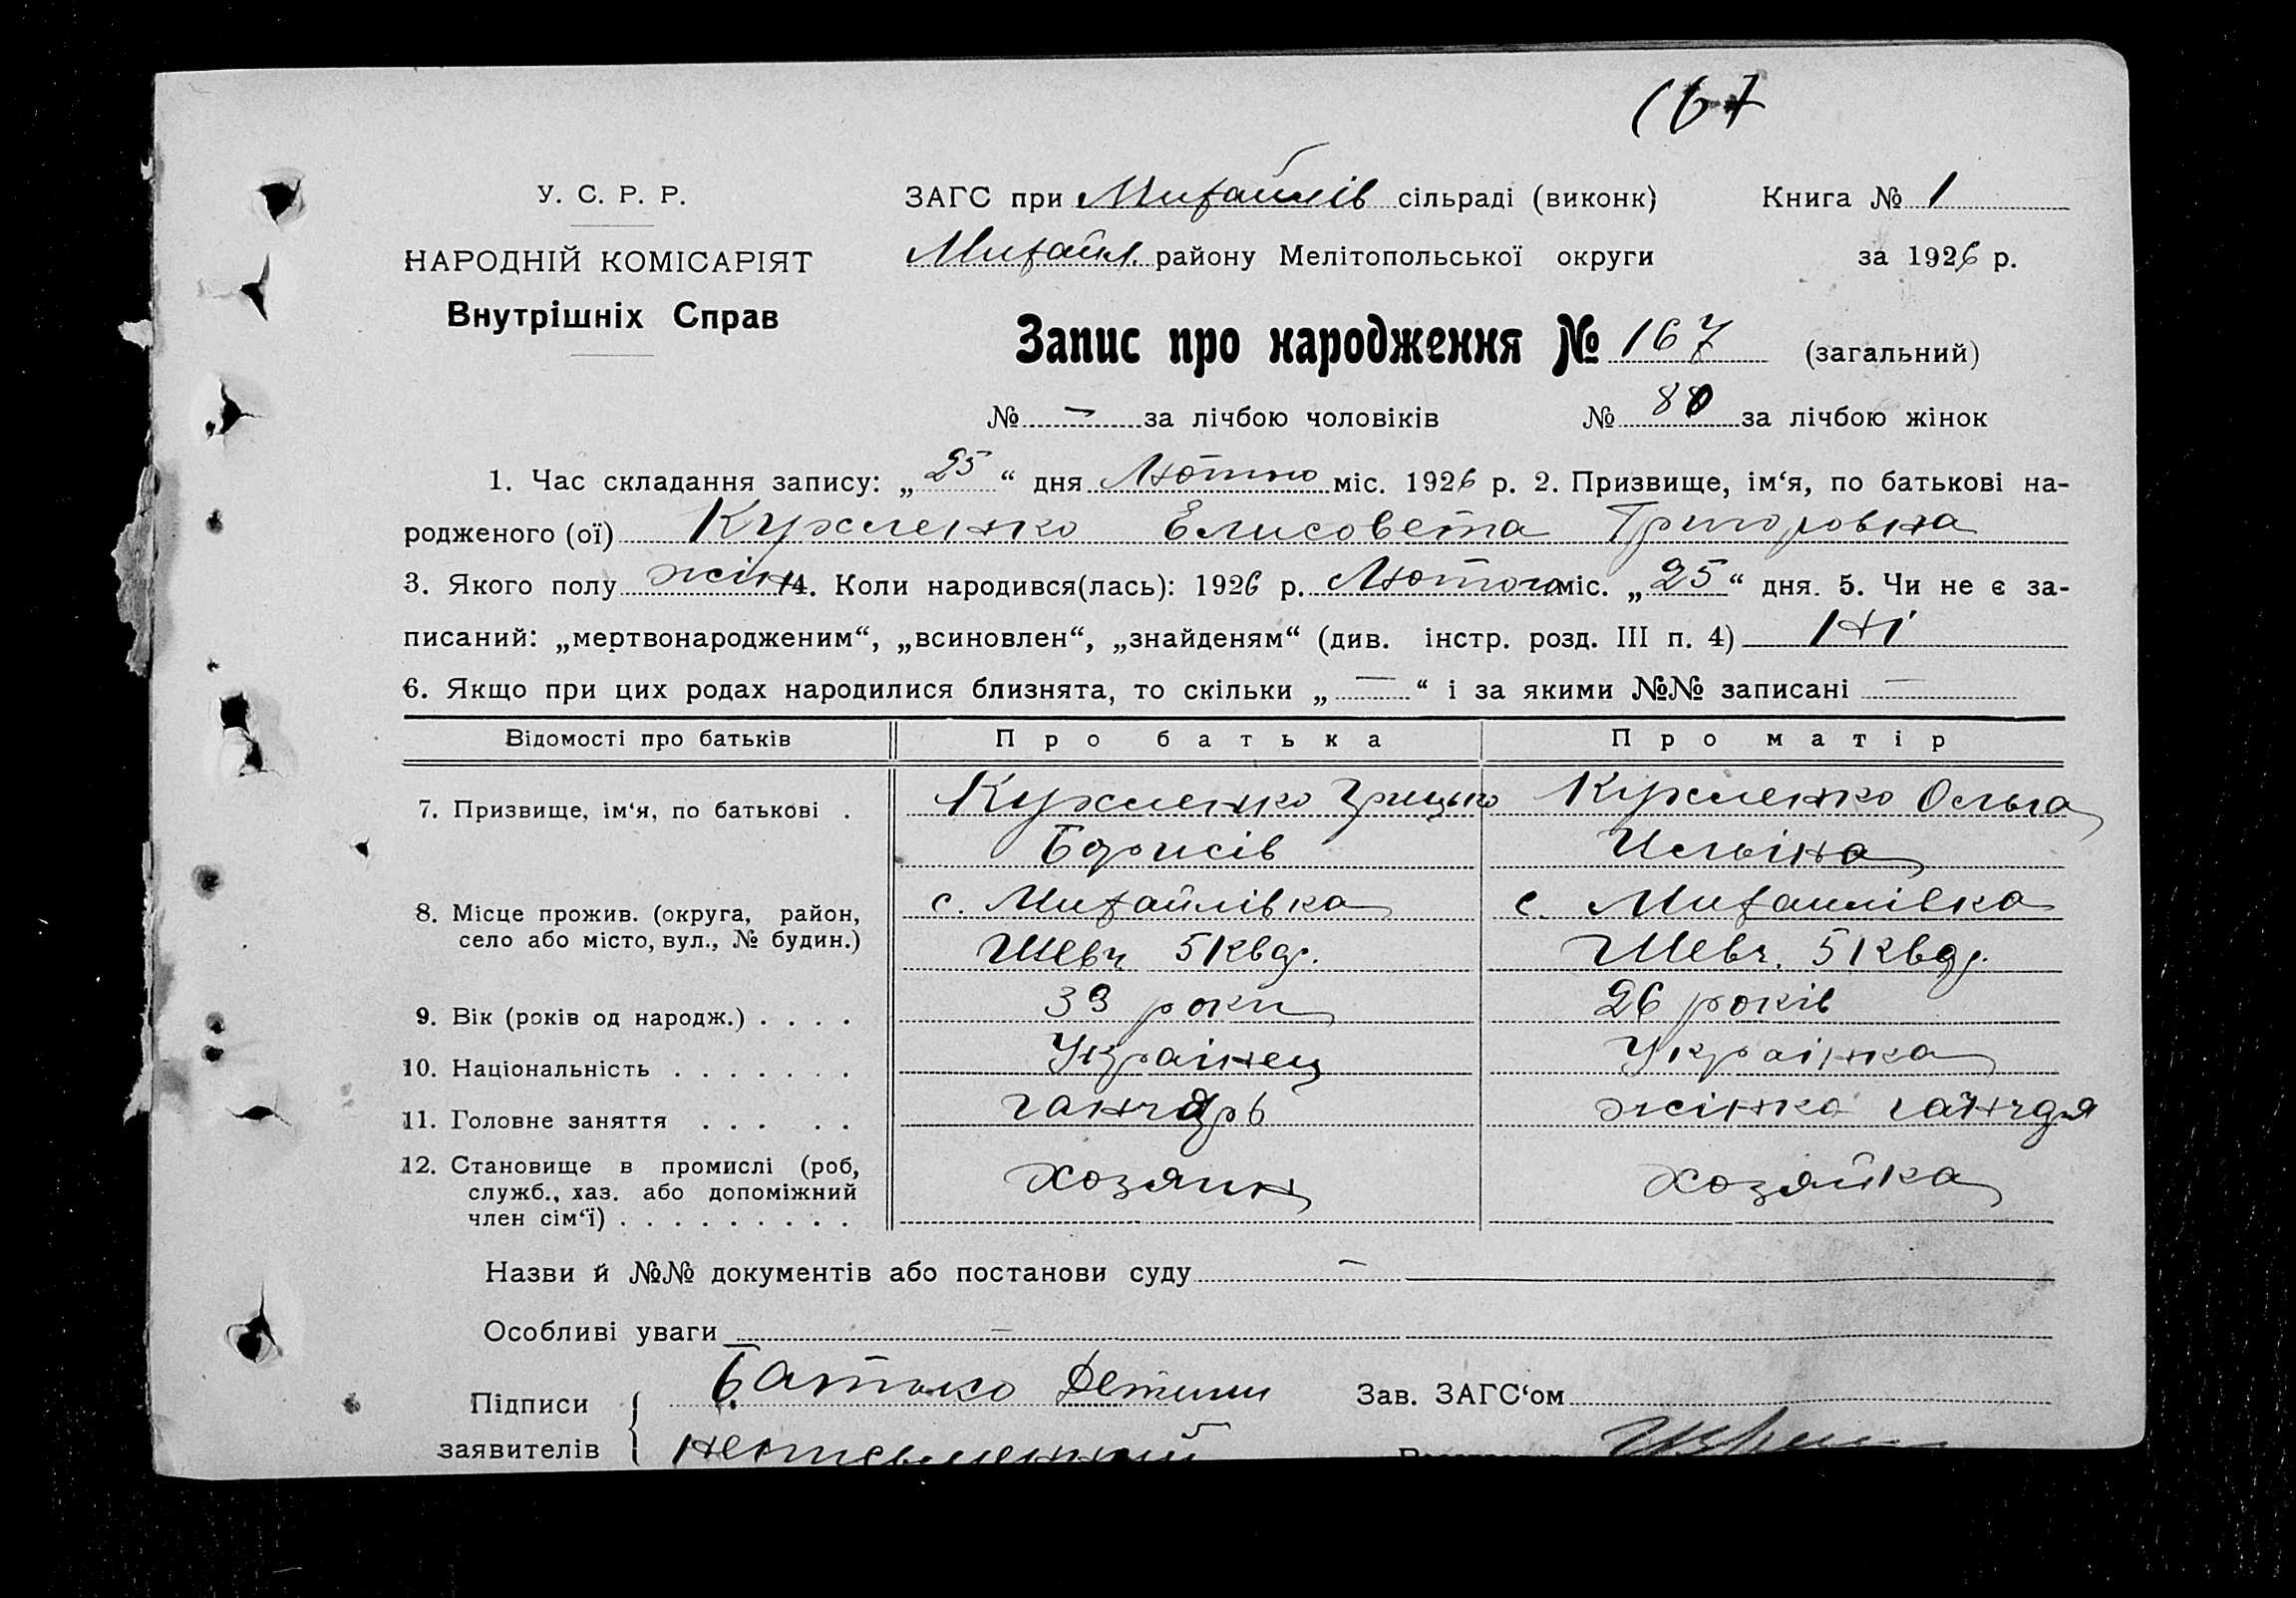 167
У. С. Р. Р.
НАРОДНІЙ КОМІСАРІЯТ
Внутрішніх Справ
ЗАГС при Михайлів сільраді (виконк) Книга № 1
Михайл. району Мелітопольської округи за 1926 р.
Запис про народження № 167 (загальний)
№ — за лічбою чоловіків № 80 за лічбою жінок
1. Час складання запису: „25“ дня Лютого міс. 1926 р. 2. Призвище, ім‘я, по батькові на-
родженого (ої) Кужленко Елисовета Григоровна
3. Якого полу жін 4. Коли народився(лась): 1926 р. Лютого міс. „25“ дня. 5. Чи не є за-
писаний: „мертвонародженим“, „всиновлен“, „знайденям“ (див. інстр. розд. III п. 4) Ні
6. Якщо при цих родах народилися близнята, то скільки „—“ і за якими №№ записані —
Відомості про батьків Про батька Про матір
7. Призвище, ім‘я, по батькові . Кужленко Грицько Кужленко Ольга
Борисів Ильіна
8. Місце прожив. (округа, район, с. Михайлівка с. Михайлівка
село або місто, вул., № будин.) Шевч. 5 Квар. Шевч. 5 Квар.
9. Вік (років од народж.) . . . . 33 роки 26 років
10. Національність . . . . . . . Украінец Украінка
11. Головне заняття . . . . . ганчарь жінка ганчаря
12. Становище в промислі (роб, хозяин хозяйка
служб., хаз. або допоміжний
член сім‘ї) . . . . . . . . .
Назви й №№ документів або постанови суду —
Особливі уваги —
Підписи Батько Детини Зав. ЗАГС‘ом
заявителів неписьменний